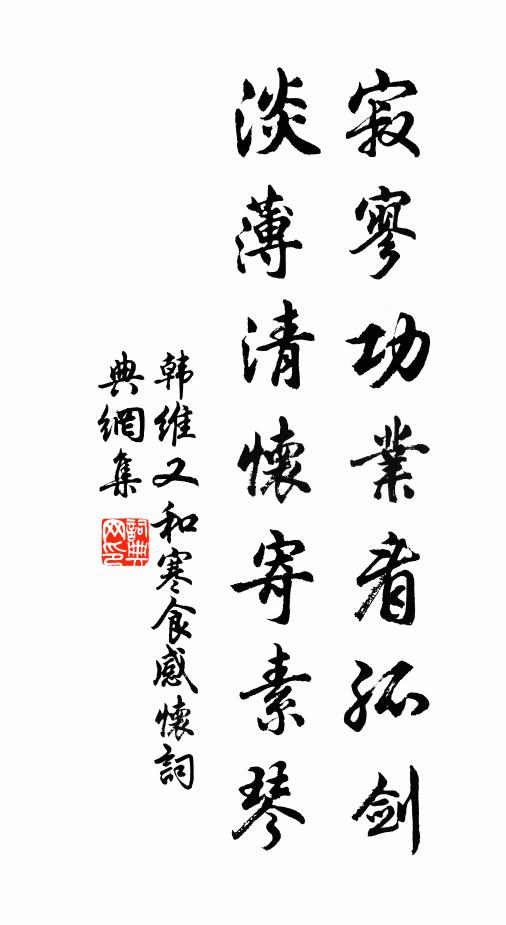 寂寥功業看孤劍
淡薄清懷寄素琴
韩維又和寒食感懷詞
典網集
詞典網印